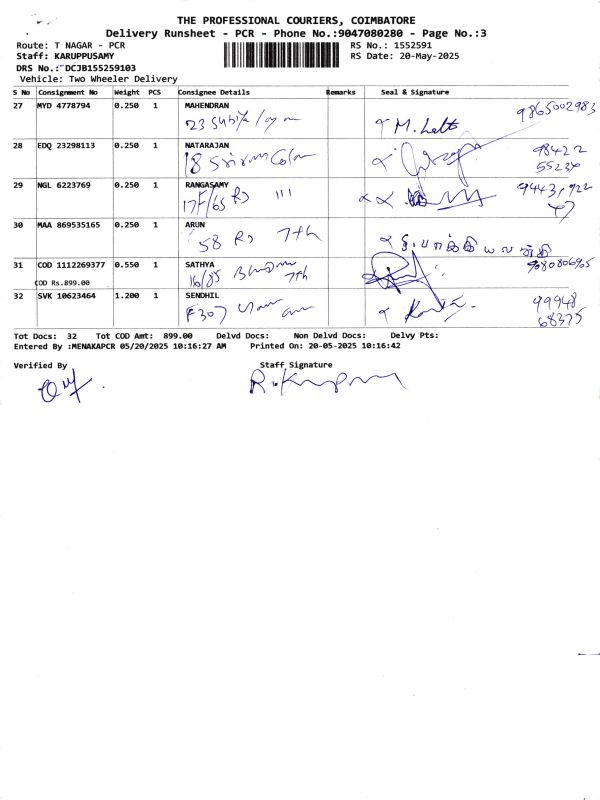 THE PROFESSIONAL COURIERS, COIMBATORE
Delivery Runsheet - PCR - Phone No.:9047080280 - Page No.:3
Route: T NAGAR - PCR RS No.: 1552591
Staff: KARUPPUSAMY RS Date: 20-May-2025
DRS No.: DCJB155259103
Vehicle: Two Wheeler Delivery
S No Consignment No Weight PCS Consignee Details Remarks Seal & Signature
27 MYD 4778794 0.250 1 MAHENDRAN
23 9865002983
28 EDQ 23298113 0.250 1 NATARAJAN
18 Sriram 98422
55234
29 NGL 6223769 0.250 1 RANGASAMY
17F/65 Rd 111 9443,922
47
30 MAA 869535165 0.250 1 ARUN
58 Rd 7th
31 COD 1112269377 0.550 1 SATHYA
COD Rs.899.00 16/85 7th 9080806905
32 SVK 10623464 1.200 1 SENDHIL
F307 99948
68375
Tot Docs: 32 Tot COD Amt: 899.00 Delvd Docs: Non Delvd Docs: Delvy Pts:
Entered By :MENAKAPCR 05/20/2025 10:16:27 AM Printed On: 20-05-2025 10:16:42
Verified By Staff Signature